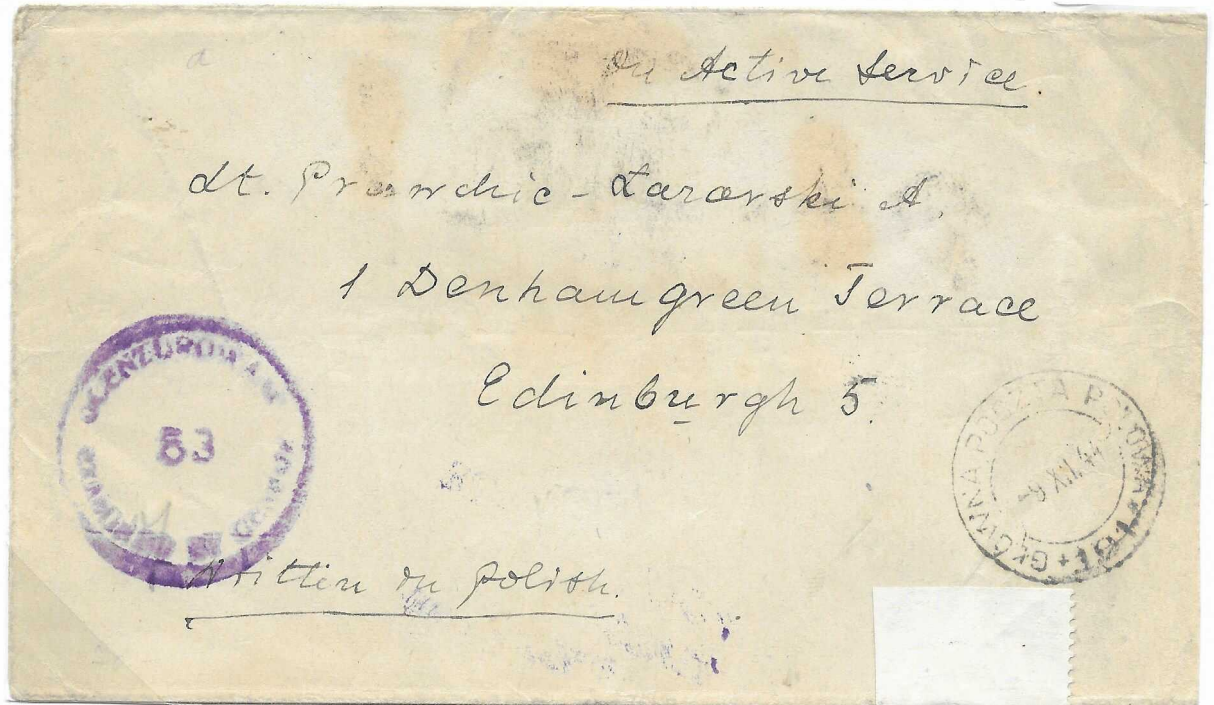 On Active Service.
Lt. Prawdzic-Lazarski A.
1 Denhamgreen Terrace
Edinburgh 5.
OCENZUROWANE
53
EXAMINED BY CENSOR
GŁÓWNA POCZTA POLOWA
-9.XII.44
* 101 *
Written in Polish.